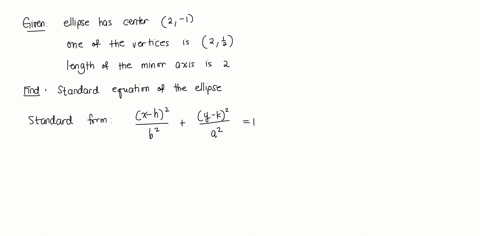 Given: ellipse has center (2, -1)
one of the vertices is (2, 1/2)
length of the minor axis is 2
Find: Standard equation of the ellipse
Standard form: (x-h)²/b² + (y-k)²/a² = 1